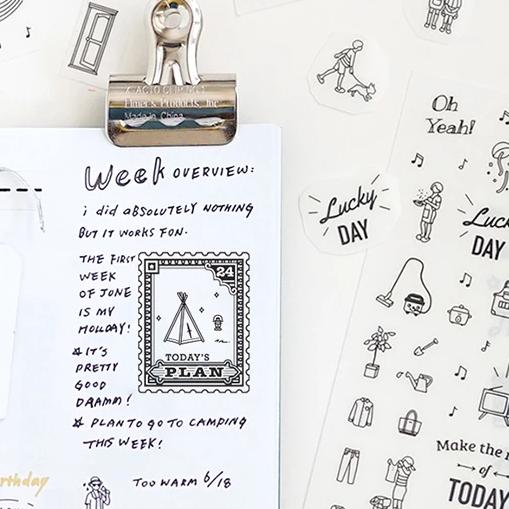 X-ACTO CLIP NO. 2
Elmer's Products, Inc
Made in China
Week OVERVIEW:
i did ABSOLUTELY NOTHING
BUT IT WORKS FON.
THE FIRST
WEEK
OF JUNE
IS MY
HOLIDAY!
IT'S
PRETTY
GOOD
DRAMM!
24
TODAY'S
PLAN
PLAN TO GO TO CAMPING
THIS WEEK!
TOO WARM 6/18
rthday
Oh
Yeah!
Lucky
DAY
Lucky
DAY
Make the
of
TODAY